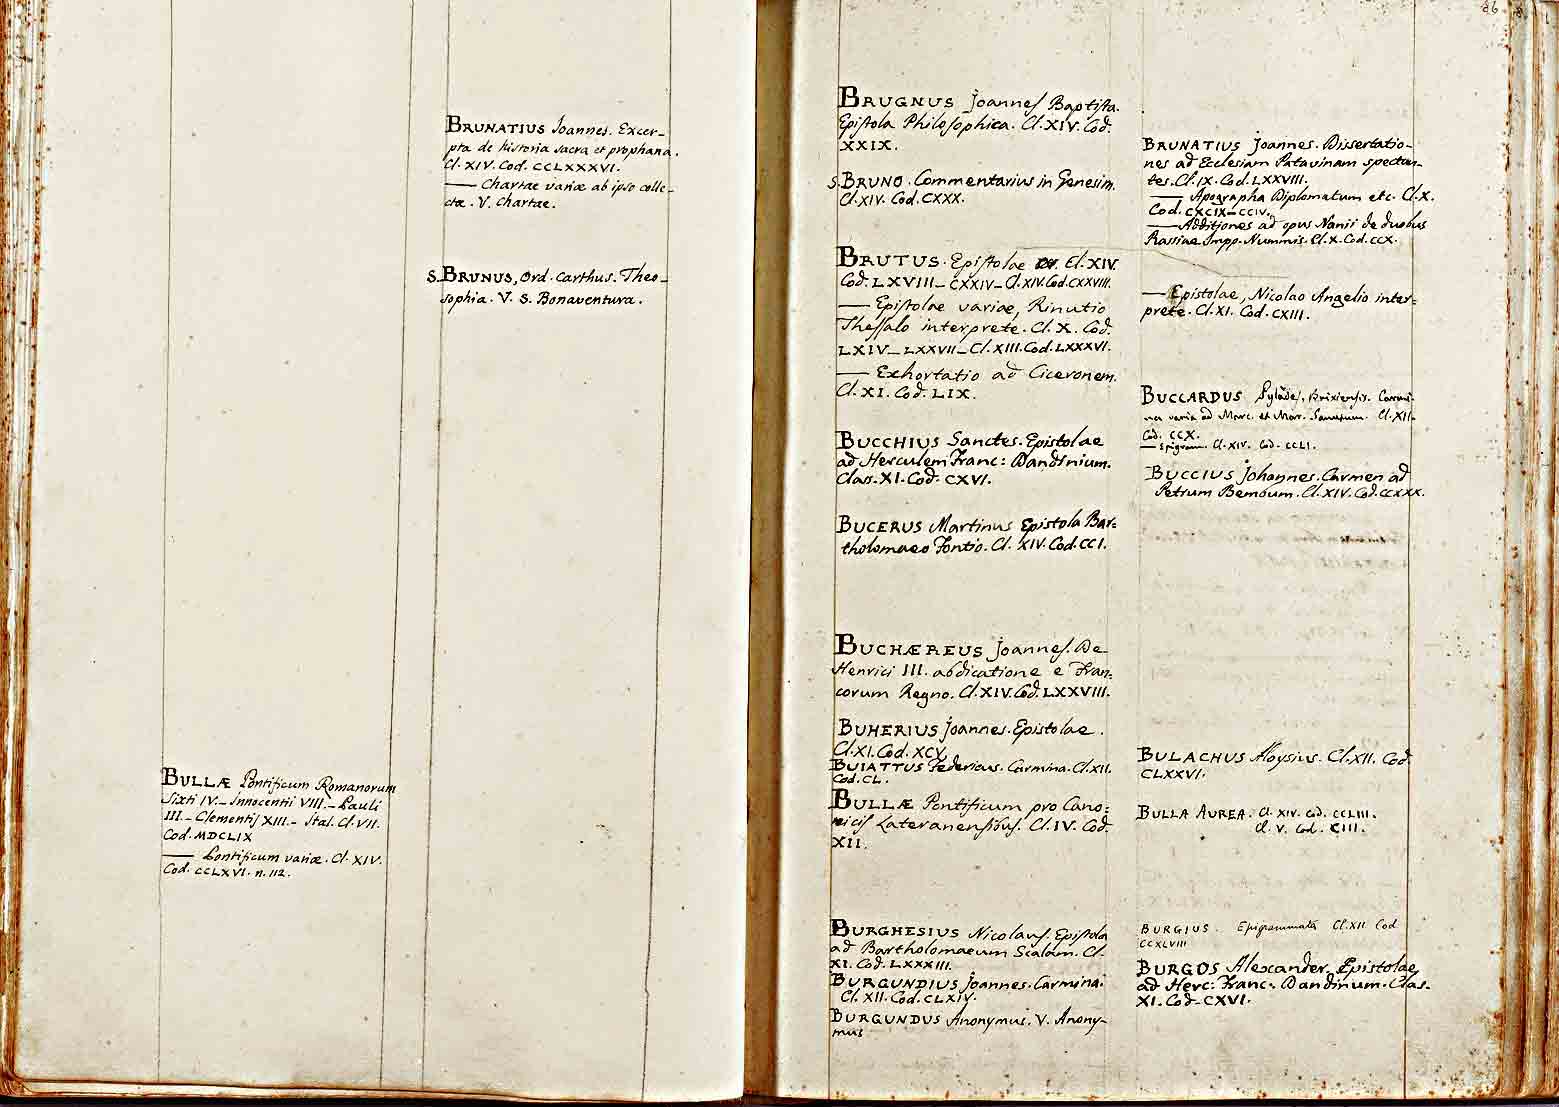 BRUNATIUS Joannes. Excer-
pta de historia sacra et prophana.
Cl. XIV. Cod. CCLXXXVI.
— Chartae variæ ab ipso colle-
ctæ. V. Chartae.
S. BRUNUS, Ord. Carthus. Theo-
sophia. V. S. Bonaventura.
BULLÆ Pontificum Romanorum
Sixti IV. - Innocentii VIII. - Pauli
III. - Clementis XIII. - Ital. Cl. VII.
Cod. MDCLIX
— Pontificum variæ. Cl. XIV.
Cod. CCLXVI. n. 112.
86
BRUGNUS Joannes Baptista.
Epistola Philosophica. Cl. XIV. Cod.
XXIX.
S. BRUNO. Commentarius in Genesim.
Cl. XIV. Cod. CXXX.
BRUTUS. Epistolae Cl. XIV.
Cod. LXVIII - CXXIV - Cl. XIV. Cod. CXXVIII.
— Epistolae variae, Rinutio
Thessalo interprete. Cl. X. Cod.
LXIV - LXXVII - Cl. XIII. Cod. LXXXVI.
— Exhortatio ad Ciceronem.
Cl. XI. Cod. LIX.
BUCCHIUS Sanctes. Epistolae
ad Herculem Franc: Dandinium.
Clas. XI. Cod. CXVI.
BUCERUS Martinus Epistola Bar-
tholomaeo Fontio. Cl. XIV. Cod. CCI.
BUCHÆREUS Joannes. De
Henrici III. abdicatione e Fran-
corum Regno. Cl. XIV. Cod. LXXVIII.
BUHERIUS Joannes. Epistolae.
Cl. XI. Cod. XCV.
BUIATTUS Federicus. Carmina. Cl. XII.
Cod. CL.
BULLÆ Pontificum pro Cano:
nicis Lateranensibus. Cl. IV. Cod.
XII.
BURGHESIUS Nicolaus. Epistola
ad Bartholomaeum Scalam. Cl.
XI. Cod. LXXXIII.
BURGUNDIUS Joannes. Carmina.
Cl. XII. Cod. CLXIV.
BURGUNDUS Anonymus. V. Anony-
mus
BRUNATIUS Joannes. Dissertatio-
nes ad Ecclesiam Patavinam spectan-
tes. Cl. IX. Cod. LXXVIII.
— Apographa Diplomatum etc. Cl. X.
Cod. CXCIX - CCIV.
— Additiones ad opus Nanii de duobus
Rassiae Impp. Nummis. Cl. X. Cod. CCX.
— Epistolae, Nicolao Angelio inter-
prete. Cl. XI. Cod. CXIII.
BUCCARDUS Pylades, Brixiensis. Carmi-
na varia ad Marc. et Mar. Sanutum. Cl. XII.
Cod. CCX.
— Epigram. Cl. XIV. Cod. CCLI.
BUCCIUS Johannes. Carmen ad
Petrum Bembum. Cl. XIV. Cod. CCXXX.
BULACHUS Aloysius. Cl. XII. Cod.
CLXXVI.
BULLA AUREA. Cl. XIV. Cod. CCLIII.
Cl. V. Cod. CIII.
BURGIUS. Epigrammata Cl. XII Cod
CCXLVIII
BURGOS Alexander. Epistolae
ad Herc: Franc: Dandinum. Clas.
XI. Cod. CXVI.